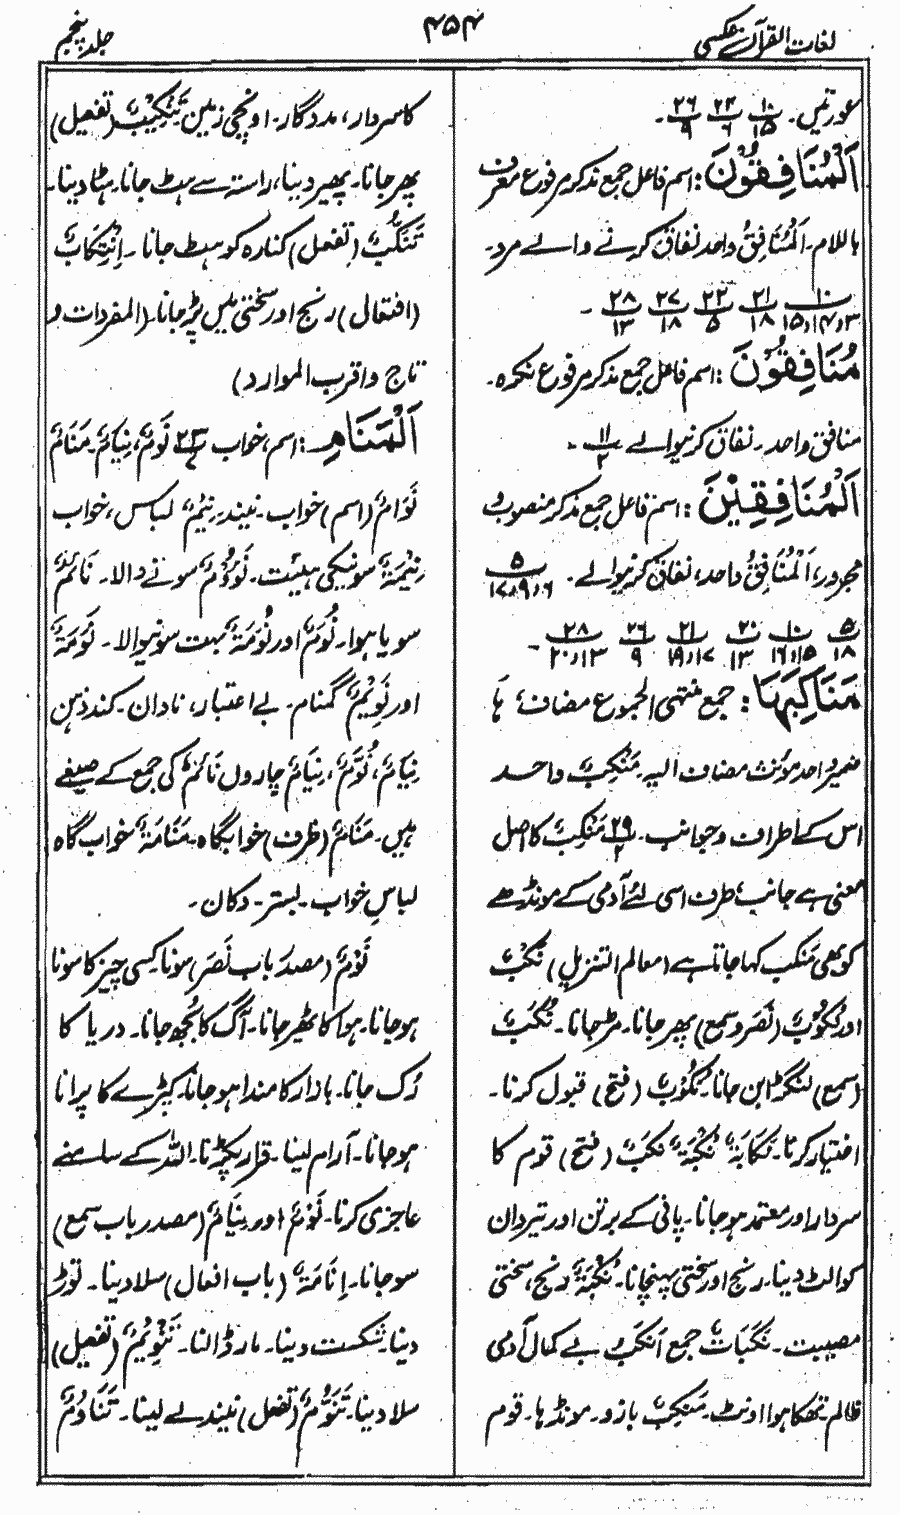 لغات القرآن عکسی ۴۵۴ جلد پنجم
عورتیں۔ ۱۰/۱۵ ۲۴/۶ ۲۶/۹۔
اَلْمُنَافِقُوْنَ: اسم فاعل جمع مذکر مرفوع معرف
باللام۔ اَلْمُنَافِقُ واحد نفاق کرنے والے مرد۔
۱۰/۱۵،۱۴،۳ ۲۱/۱۸ ۲۲/۵ ۲۷/۱۸ ۲۸/۱۳۔
مُنَافِقُوْنَ: اسم فاعل جمع مذکر مرفوع نکرہ۔
منافق واحد۔ نفاق کرنیوالے ۱۱/۲۔
اَلْمُنَافِقِیْنَ: اسم فاعل جمع مذکر منصوب و
مجرور، اَلْمُنَافِقُ واحد، نفاق کرنیوالے۔ ۵/۱۷،۹،۶
۵/۱۸ ۱۰/۱۶،۱۵ ۲۰/۱۳ ۲۱/۱۹،۱۷ ۲۶/۹ ۲۸/۲۰،۱۳۔
مَنَاکِبِہَا: جمع منتہی الجموع مضاف، ہَا
ضمیر واحد مؤنث مضاف الیہ۔ مَنْکِبٌ واحد
اس کے اطراف و جوانب۔ ۲۹/۲ مَنْکِبٌ کا اصل
معنی ہے جانب، طرف اسی لئے آدمی کے مونڈھے
کو بھی مَنکب کہا جاتا ہے (معالم التنزیل) نَکْبٌ
اور نُکُوْبٌ (نَصَر و سمع) پھر جانا۔ مڑ جانا۔ نَکَبٌ
(سمع) لنگڑا بن جانا۔ نُکُوْبٌ (فتح) قبول کرنا۔
اختیار کرنا۔ نَکَابَۃٌ نُکْبَۃٌ نکبٌ (فتح) قوم کا
سردار اور معتمد ہو جانا۔ پانی کے برتن اور تیردان
کو الٹ دینا۔ رنج اور سختی پہنچانا۔ نُکْبَۃٌ رنج، سختی
مصیبت۔ نَکَبَاتٌ جمع اَنکَبُ بے کمال آدمی
ظالم۔ تھکا ہوا اونٹ۔ مَنکِبٌ بازو۔ مونڈہا۔ قوم
کا سردار، مددگار۔ اونچی زمین تَنْکِیْبٌ (تفعیل)
پھر جانا۔ پھیر دینا، راستہ سے ہٹ جانا۔ ہٹا دینا۔
تَنَکُّبٌ (تفعل) کنارہ کو ہٹ جانا۔ اِنْتِکَابٌ
(افتعال) رنج اور سختی میں پڑ جانا۔ (المفردات و
تاج و اقرب الموارد)
اَلْمَنَامِ: اسم، خواب ۲۳/۷ نَوْمٌ، نِیَامٌ۔ مَنَامٌ
نَوَامٌ (اسم) خواب۔ نیند۔ نِیْمٌ لباس، خواب
نِیْمَۃٌ سونیکی ہیئت۔ نَوُوْمٌ سونے والا۔ نَائمٌ
سویا ہوا۔ نُوَمٌ اور نُوَمَۃٌ بہت سونیوالا۔ نَوْمَۃٌ
اور نَوِیْمٌ گمنام۔ بے اعتبار، نادان۔ کند ذہن
نِیَامٌ، نُوَّمٌ، نِیَامٌ چاروں نَائِمٌ کی جمع کے صیغے
ہیں۔ مَنَامٌ (ظرف) خوابگاہ۔ مَنَامَۃٌ خواب گاہ
لباسِ خواب۔ بستر۔ دکان۔
نَوْمٌ (مصدر باب نَصَر) سونا کسی چیز کا سونا
ہو جانا۔ ہوا کا ٹھہر جانا۔ آگ کا بُجھ جانا۔ دریا کا
رُک جانا۔ بازار کا مندا ہو جانا۔ کپڑے کا پرانا
ہو جانا۔ آرام لینا۔ قرار پکڑنا۔ اللہ کے سامنے
عاجزی کرنا۔ نَوْمٌ اور نِیَامٌ (مصدر باب سمع)
سو جانا۔ اِنَامَۃٌ (باب افعال) سلا دینا۔ توڑ
دینا۔ شکست دینا۔ مار ڈالنا۔ تَنْوِیْمٌ (تفعیل)
سلا دینا۔ تَنَوُّمٌ (تفعل) نیند لے لینا۔ تَنَاوُمٌ